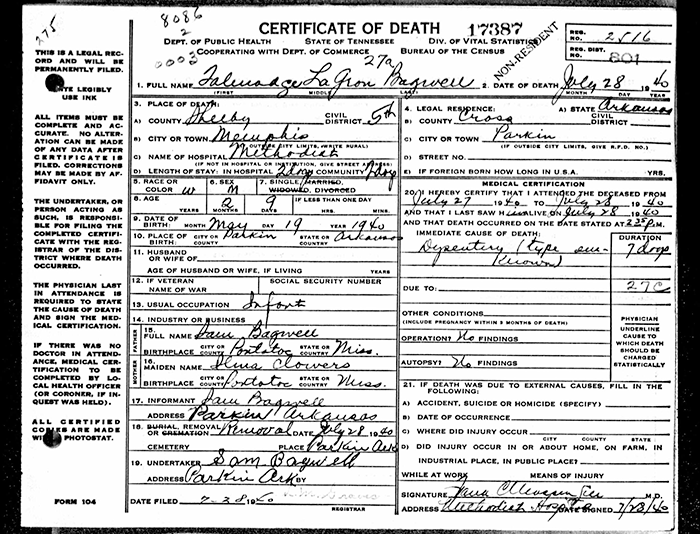 8086
2
0003
275
CERTIFICATE OF DEATH
17387
NON-RESIDENT
REG. NO. 2516
REG. DIST. 801
DEPT. OF PUBLIC HEALTH STATE OF TENNESSEE DIV. OF VITAL STATISTICS
COOPERATING WITH DEPT. OF COMMERCE BUREAU OF THE CENSUS
27a
1. FULL NAME Talmadge LaGron Bagwell
(FIRST) (MIDDLE) (LAST)
2. DATE OF DEATH July 28 1940
MONTH DAY YEAR
THIS IS A LEGAL RECORD AND WILL BE PERMANENTLY FILED.
LEGIBLY
USE INK
ALL ITEMS MUST BE COMPLETE AND ACCURATE. NO ALTERATION CAN BE MADE OF ANY DATA AFTER CERTIFICATE IS FILED. CORRECTIONS MAY BE MADE BY AFFIDAVIT ONLY.
THE UNDERTAKER, OR PERSON ACTING AS SUCH, IS RESPONSIBLE FOR FILING THE COMPLETED CERTIFICATE WITH THE REGISTRAR OF THE DISTRICT WHERE DEATH OCCURRED.
THE PHYSICIAN LAST IN ATTENDANCE IS REQUIRED TO STATE THE CAUSE OF DEATH AND SIGN THE MEDICAL CERTIFICATION.
IF THERE WAS NO DOCTOR IN ATTENDANCE, MEDICAL CERTIFICATION TO BE COMPLETED BY LOCAL HEALTH OFFICER (OR CORONER, IF INQUEST WAS HELD).
ALL CERTIFIED COPIES ARE MADE WITH PHOTOSTAT.
FORM 104
3. PLACE OF DEATH:
A) COUNTY Shelby CIVIL DISTRICT 5th
B) CITY OR TOWN Memphis
(IF OUTSIDE CITY LIMITS, WRITE RURAL)
C) NAME OF HOSPITAL Methodist
(IF NOT IN HOSPITAL OR INSTITUTION, GIVE STREET ADDRESS)
D) LENGTH OF STAY: IN HOSPITAL 2 days COMMUNITY 2 days
4. LEGAL RESIDENCE: A) STATE Arkansas
B) COUNTY Cross CIVIL DISTRICT
C) CITY OR TOWN Parkin
(IF OUTSIDE CITY LIMITS, GIVE R.F.D. NO.)
D) STREET NO.
E) IF FOREIGN BORN HOW LONG IN U.S.A. YRS.
5. RACE OR COLOR W 6. SEX M 7. SINGLE, MARRIED, WIDOWED, DIVORCED
8. AGE 2 9 IF LESS THAN ONE DAY
YEARS MONTHS DAYS HRS. MINS.
9. DATE OF BIRTH: MONTH May DAY 19 YEAR 1940
10. PLACE OF BIRTH: CITY OR COUNTY Parkin STATE OR COUNTRY Arkansas
11. HUSBAND OR WIFE OF
AGE OF HUSBAND OR WIFE, IF LIVING YEARS
12. IF VETERAN NAME OF WAR SOCIAL SECURITY NUMBER
13. USUAL OCCUPATION Infant
14. INDUSTRY OR BUSINESS
FATHER 15. FULL NAME Sam Bagwell
BIRTHPLACE CITY OR COUNTY Pontotoc STATE OR COUNTRY Miss.
MOTHER 16. MAIDEN NAME Clowers
BIRTHPLACE CITY OR COUNTY Pontotoc STATE OR COUNTRY Miss.
17. INFORMANT Sam Bagwell
ADDRESS Parkin Arkansas
18. BURIAL, REMOVAL OR CREMATION Removal DATE July 28 1940
CEMETERY PLACE Parkin Ark
19. UNDERTAKER Sam Bagwell
ADDRESS Parkin Ark BY
DATE FILED 7-28-1940
REGISTRAR
MEDICAL CERTIFICATION
20. I HEREBY CERTIFY THAT I ATTENDED THE DECEASED FROM
July 27 1940 TO July 28 1940
AND THAT I LAST SAW HIM ALIVE ON July 28 1940
AND THAT DEATH OCCURRED ON THE DATE STATED AT 2 35 P.M.
IMMEDIATE CAUSE OF DEATH: DURATION
Dysentery (type un-
known) 7 days
DUE TO: 27c
OTHER CONDITIONS
(INCLUDE PREGNANCY WITHIN 3 MONTHS OF DEATH)
OPERATION? No FINDINGS
AUTOPSY? No FINDINGS
PHYSICIAN UNDERLINE CAUSE TO WHICH DEATH SHOULD BE CHARGED STATISTICALLY
21. IF DEATH WAS DUE TO EXTERNAL CAUSES, FILL IN THE FOLLOWING:
A) ACCIDENT, SUICIDE OR HOMICIDE (SPECIFY)
B) DATE OF OCCURRENCE
C) WHERE DID INJURY OCCUR
CITY COUNTY STATE
D) DID INJURY OCCUR IN OR ABOUT HOME, ON FARM, IN
INDUSTRIAL PLACE, IN PUBLIC PLACE?
WHILE AT WORK MEANS OF INJURY
SIGNATURE M.D.
ADDRESS Methodist Hospital DATE SIGNED 7/28/40